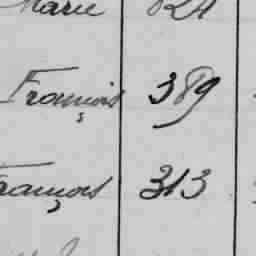 Marie
François 389
François 313